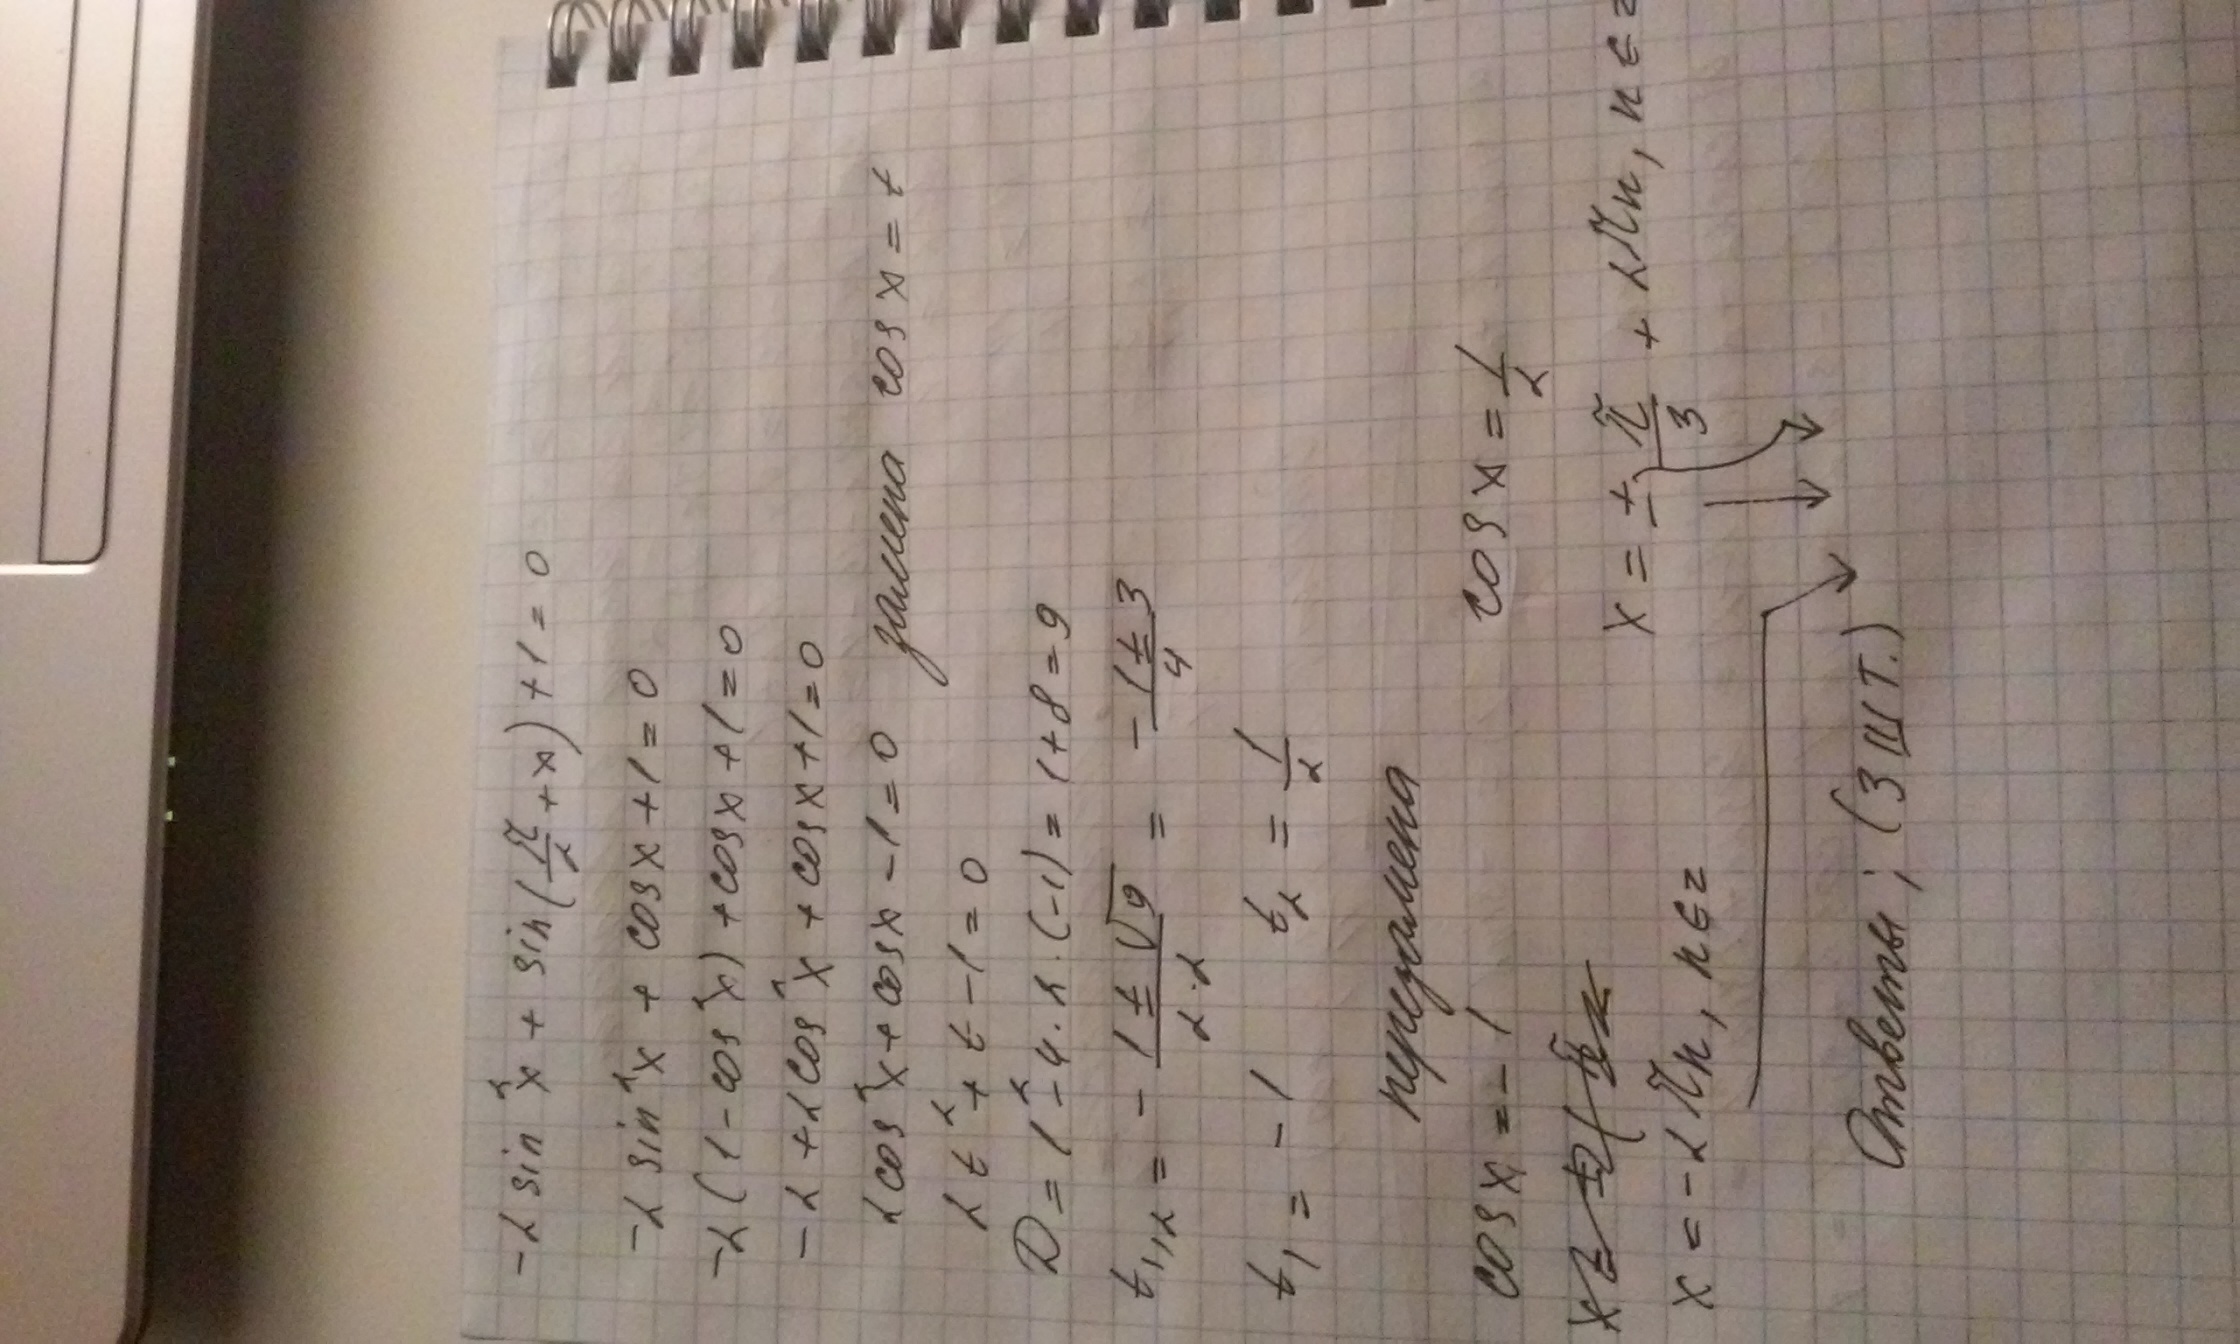 -2 sin² x + sin (π/2 + x) + 1 = 0
-2 sin² x + cos x + 1 = 0
-2 (1 - cos² x) + cos x + 1 = 0
-2 + 2 cos² x + cos x + 1 = 0
2 cos² x + cos x - 1 = 0 замена cos x = t
2 t² + t - 1 = 0
D = 1² - 4 · 2 · (-1) = 1 + 8 = 9
t1,2 = - 1 ± √9 / 2·2 = - 1 ± 3 / 4
t1 = - 1 t2 = 1/2
перезамена
cos x = - 1 cos x = 1/2
x = - 2πn, n ∈ z x = ± π/3 + 2πn, n ∈ z
Ответы ; (3 шт.)